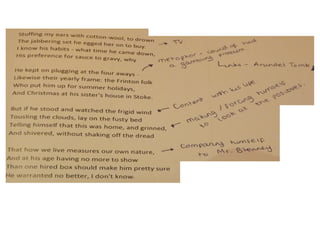 Stuffing my ears with cotton-wool, to drown
The jabbering set he egged her on to buy.
I know his habits - what time he came down,
His preference for sauce to gravy, why
He kept on plugging at the four aways -
Likewise their yearly frame: the Frinton folk
Who put him up for summer holidays,
And Christmas at his sister's house in Stoke.
But if he stood and watched the frigid wind
Tousling the clouds, lay on the fusty bed
Telling himself that this was home, and grinned,
And shivered, without shaking off the dread
That how we live measures our own nature,
And at his age having no more to show
Than one hired box should make him pretty sure
He warranted no better, I don't know.
TV
metaphor - could of had
a gambling problem
Links - Arundel Tomb
Content with his life
making / forcing himself
to look at the positives.
Comparing himself
to Mr. Bleaney